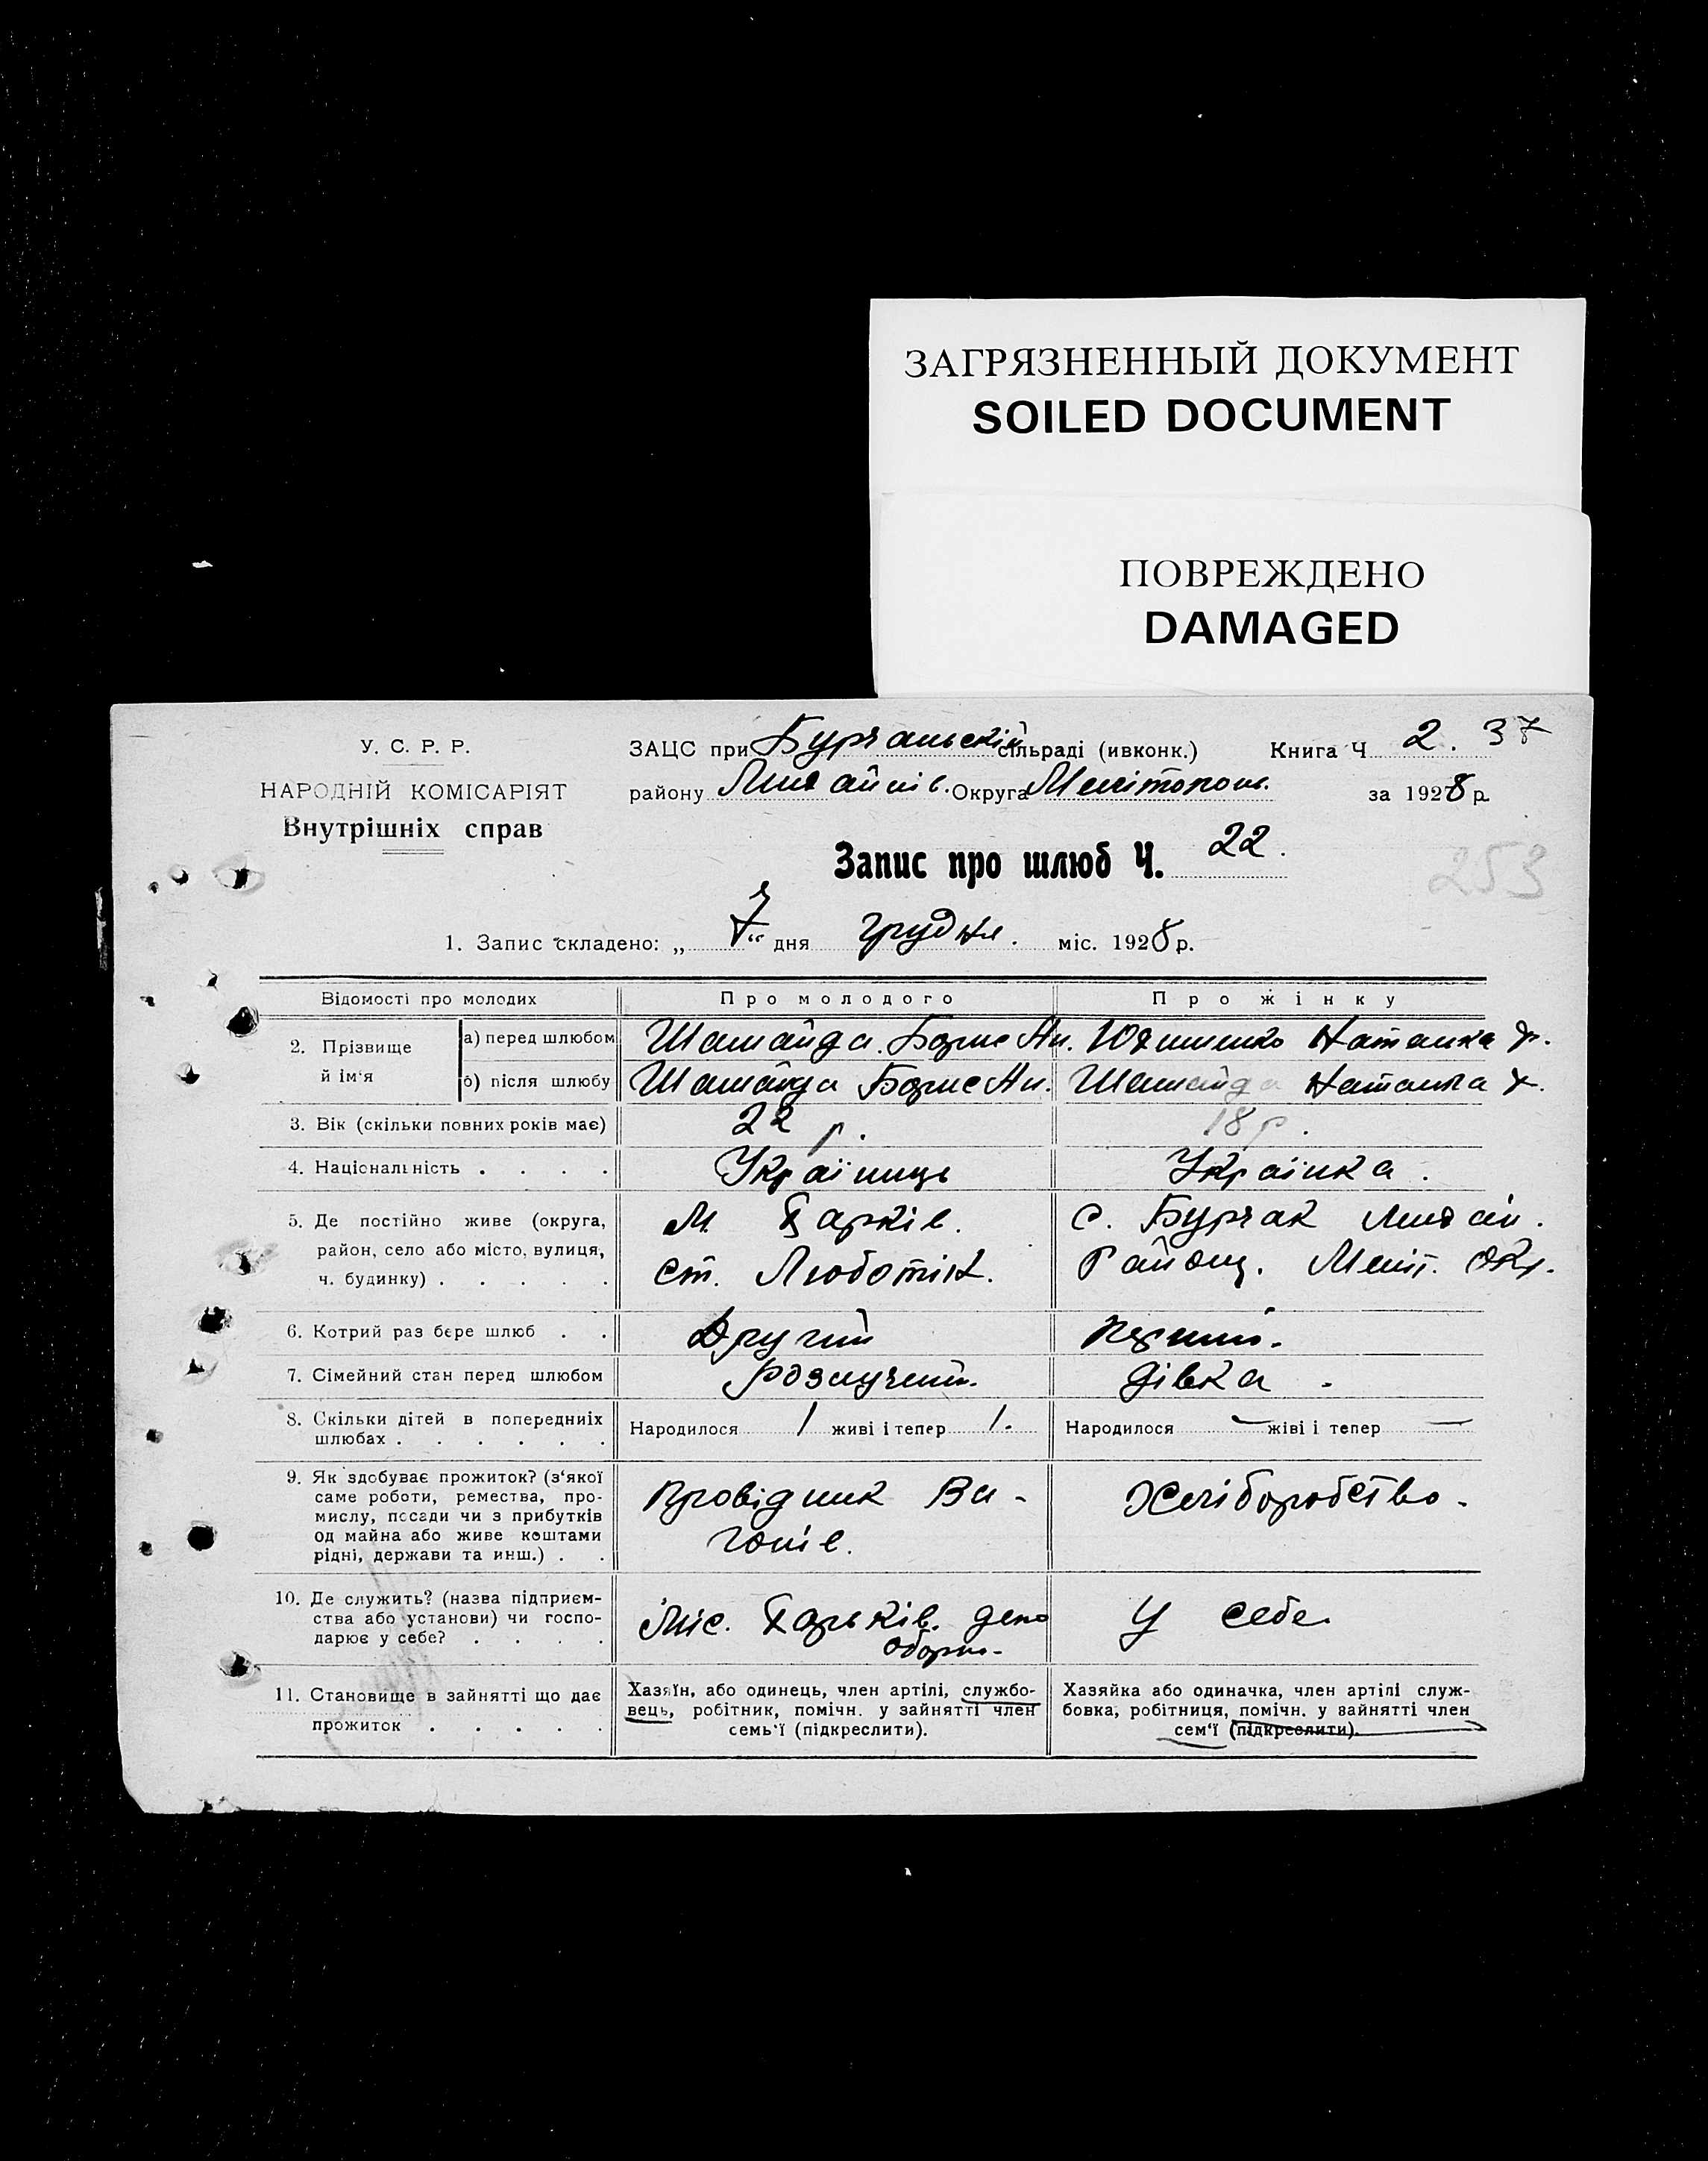 ЗАГРЯЗНЕННЫЙ ДОКУМЕНТ
SOILED DOCUMENT
ПОВРЕЖДЕНО
DAMAGED
У. С. Р. Р.
НАРОДНІЙ КОМІСАРІЯТ
Внутрішніх справ
ЗАЦС при Бурчанській сільраді (ивконк.) Книга Ч 2. 37
району Михайлів. Округа Мелітополь. за 1928 р.
Запис про шлюб Ч. 22.
253
1. Запис складено: „ 7 “ дня грудня. міс. 1928 р.
Відомості про молодих Про молодого Про жінку
2. Прізвище й ім‘я а) перед шлюбом Шамайда. Борис Ан. Наталка
б) після шлюбу Шамайда Борис Ан. Шамайда Наталка
3. Вік (скільки повних років має) 22 р. 18 р.
4. Національність . . . . Українць Українка.
5. Де постійно живе (округа, М Харків. с. Бурчак Михай.
район, село або місто, вулиця,
ч. будинку) . . . . . ст. Люботін. Району. Меліт. окр.
6. Котрий раз бере шлюб . . Другий Перший.
7. Сімейний стан перед шлюбом Розлучений. дівка.
8. Скільки дітей в попередниіх Народилося 1 живі і тепер 1. Народилося — жіві і тепер —
шлюбах . . . . . .
9. Як здобуває прожиток? (з‘якої
саме роботи, ремества, про- Провідник Ва- Хліборобство.
мислу, посади чи з прибутків
од майна або живе коштами гонів.
рідні, держави та инш.) . .
10. Де служить? (назва підприєм-
ства або установи) чи госпо- Міс. Харьків. депо У себе.
дарює у себе? . . . .
11. Становище в зайнятті що дає Хазяїн, або одинець, член артілі, службо- Хазяйка або одиначка, член артілі служ-
прожиток . . . . . вець, робітник, помічн. у зайнятті член бовка, робітниця, помічн. у зайнятті член
семь‘ї (підкреслити). сем‘ї (підкреслити).